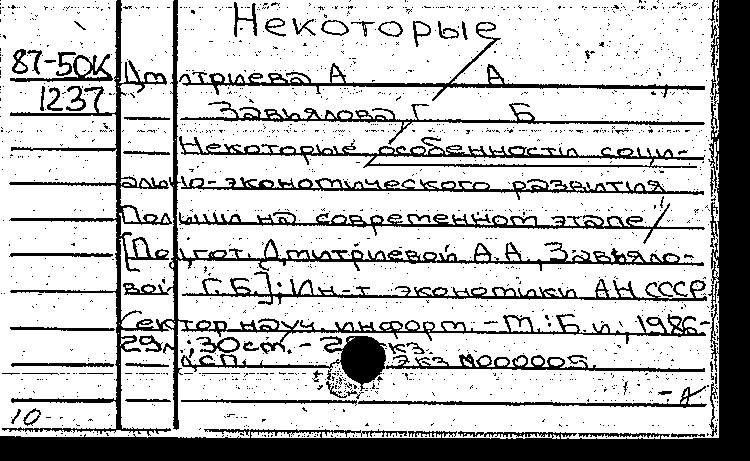 Некоторые
87-50К Дмитриева, А А
1237 Завьялова, Г Б
Некоторые особенности соци-
ально-экономического развития
Польши на современном этапе /
[Подгот. Дмитриевой А.А., Завьяло-
вой Г.Б.]; Ин-т экономики АН СССР
Сектор науч. информ. - М.: Б.и., 1986-
29л.; 30см. -
экз. N000005.
10